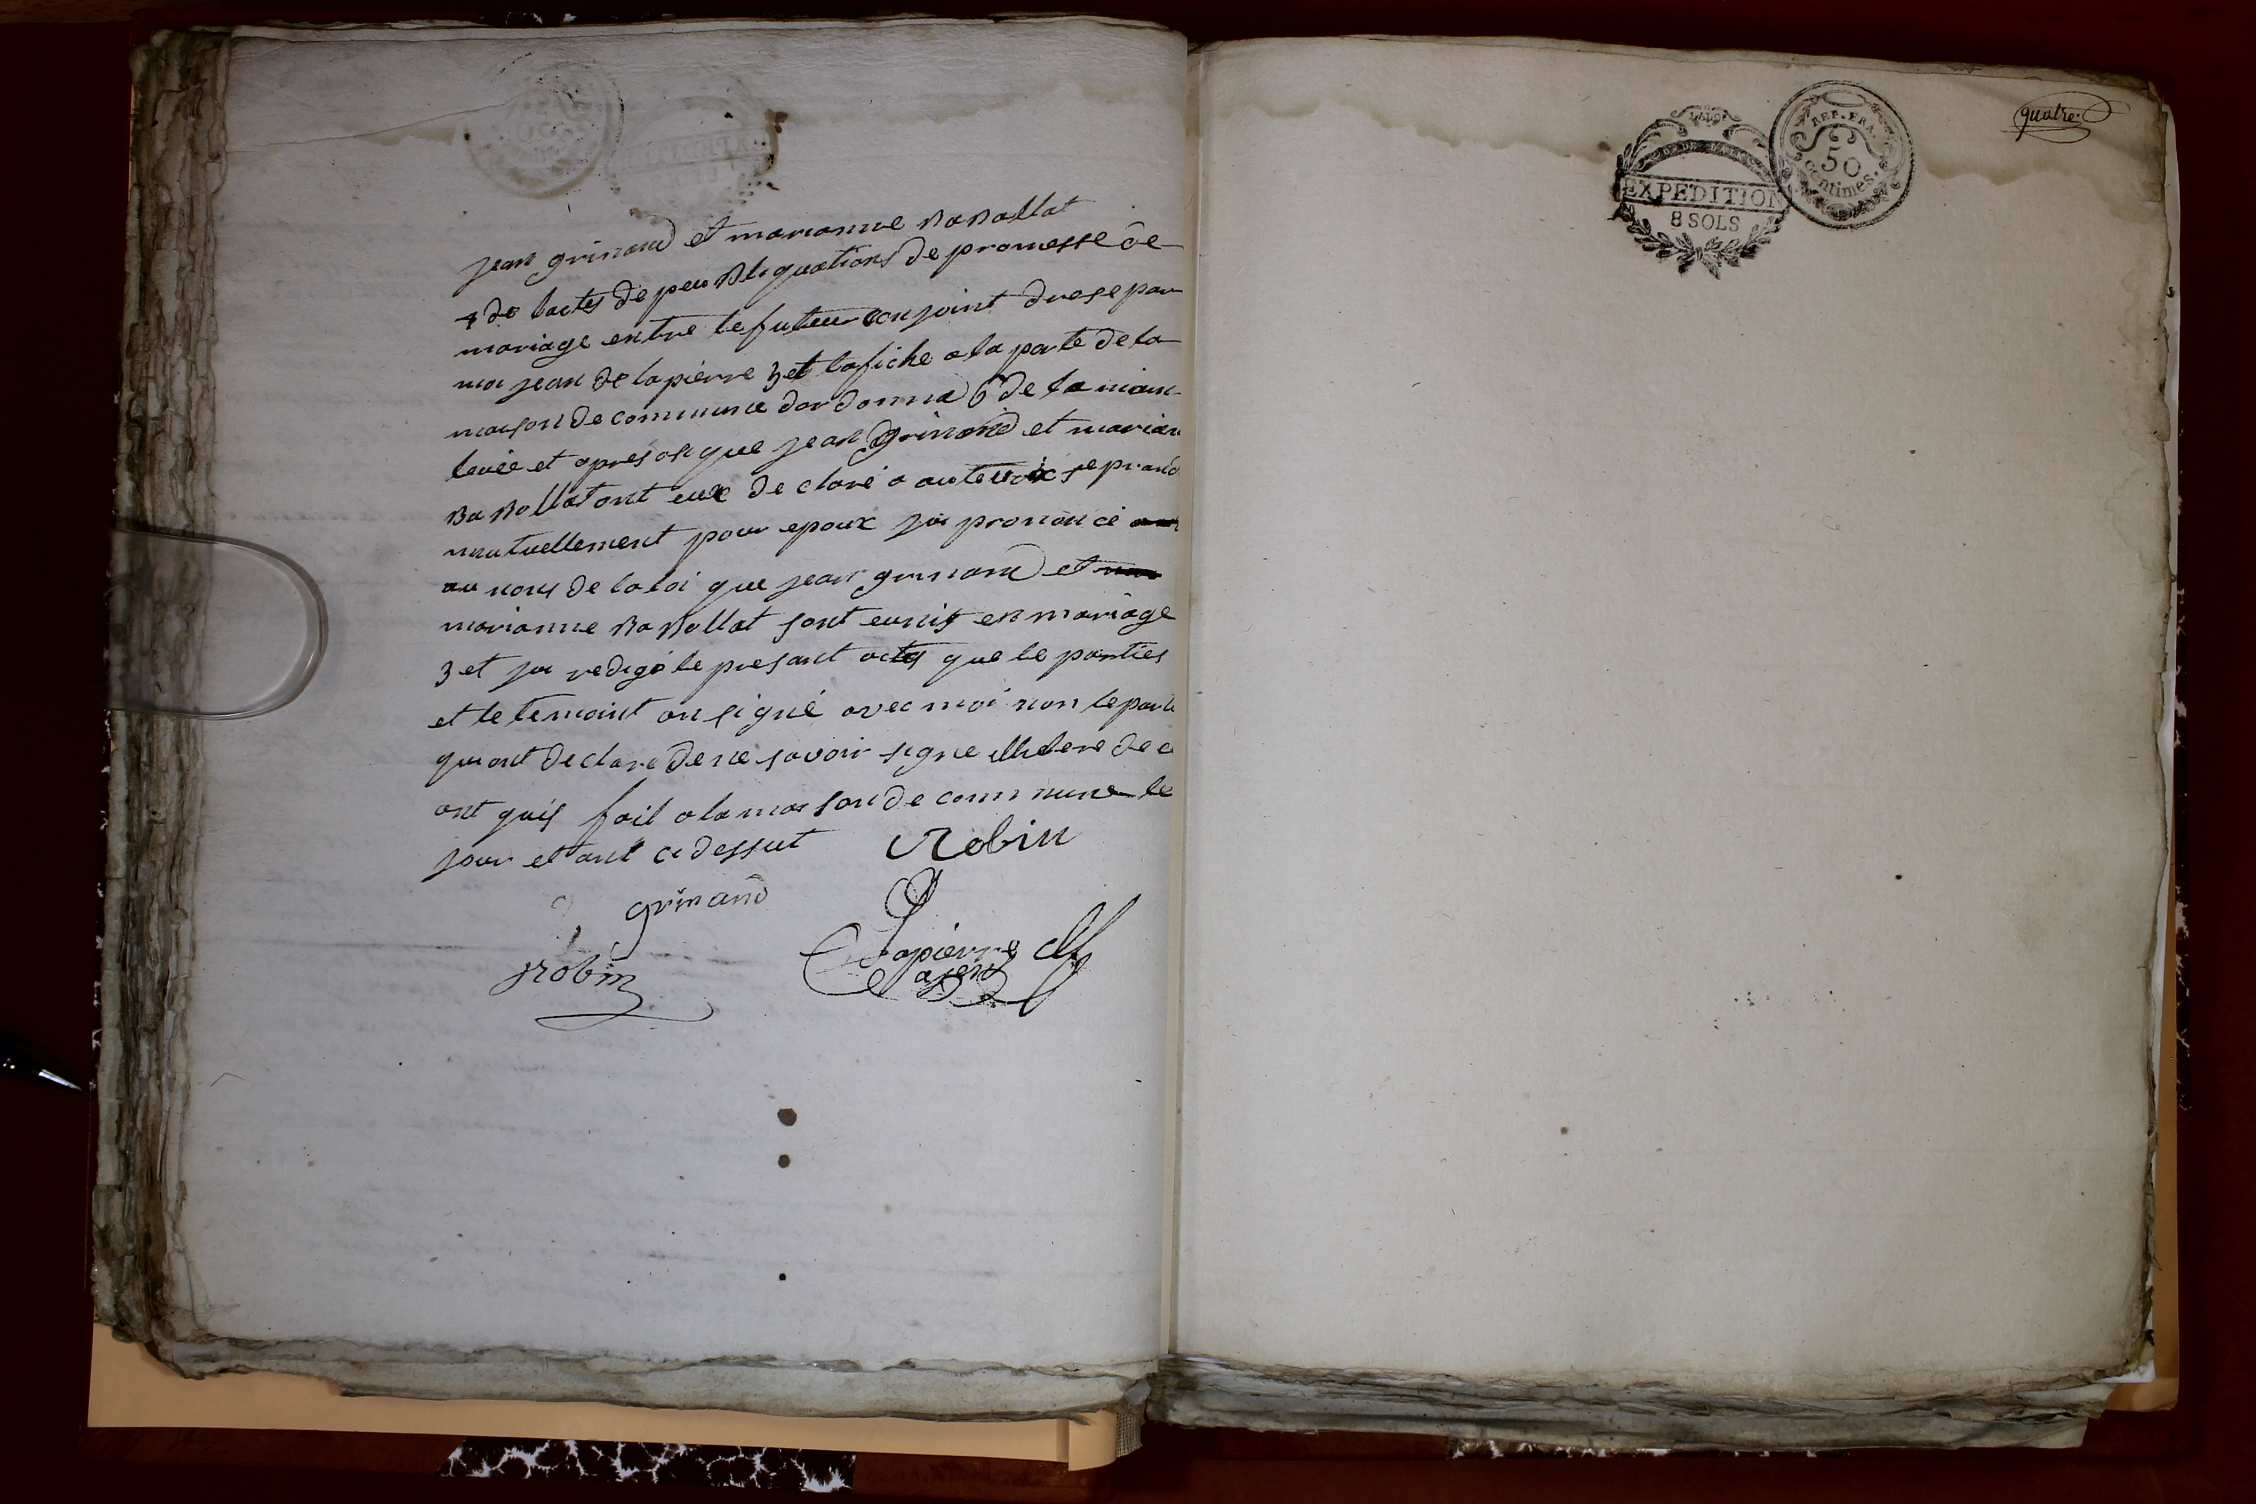 jean grinand et marianne BaBollat
4 de lactes de peubliquations de promesse de
mariage entre le futeur conjoint drese par
moi jean de lapierre 5 et lafiche a la porte de la
maison de commune dordonna 6 de la main
levée et apres os que jean grinand et marian
BaBollat ont eux declaré a aute voix se prand
mutuellement pour epoux jai prononcé
au noms de la loi que jean grinand et
marianne BaBollat sont eunis en mariage
3 et jai redigé le presant actes que le parties
et le temoint on signé avec moi non le parti
qui ont declare de ne savoir signe de
ont quis fait a la maison de commune le
jour et ant ci dessut Robin
grinand
Robin
Lapierre
agent
quatre
EXPEDITION
8 SOLS
REP. FRA.
50
centimes.